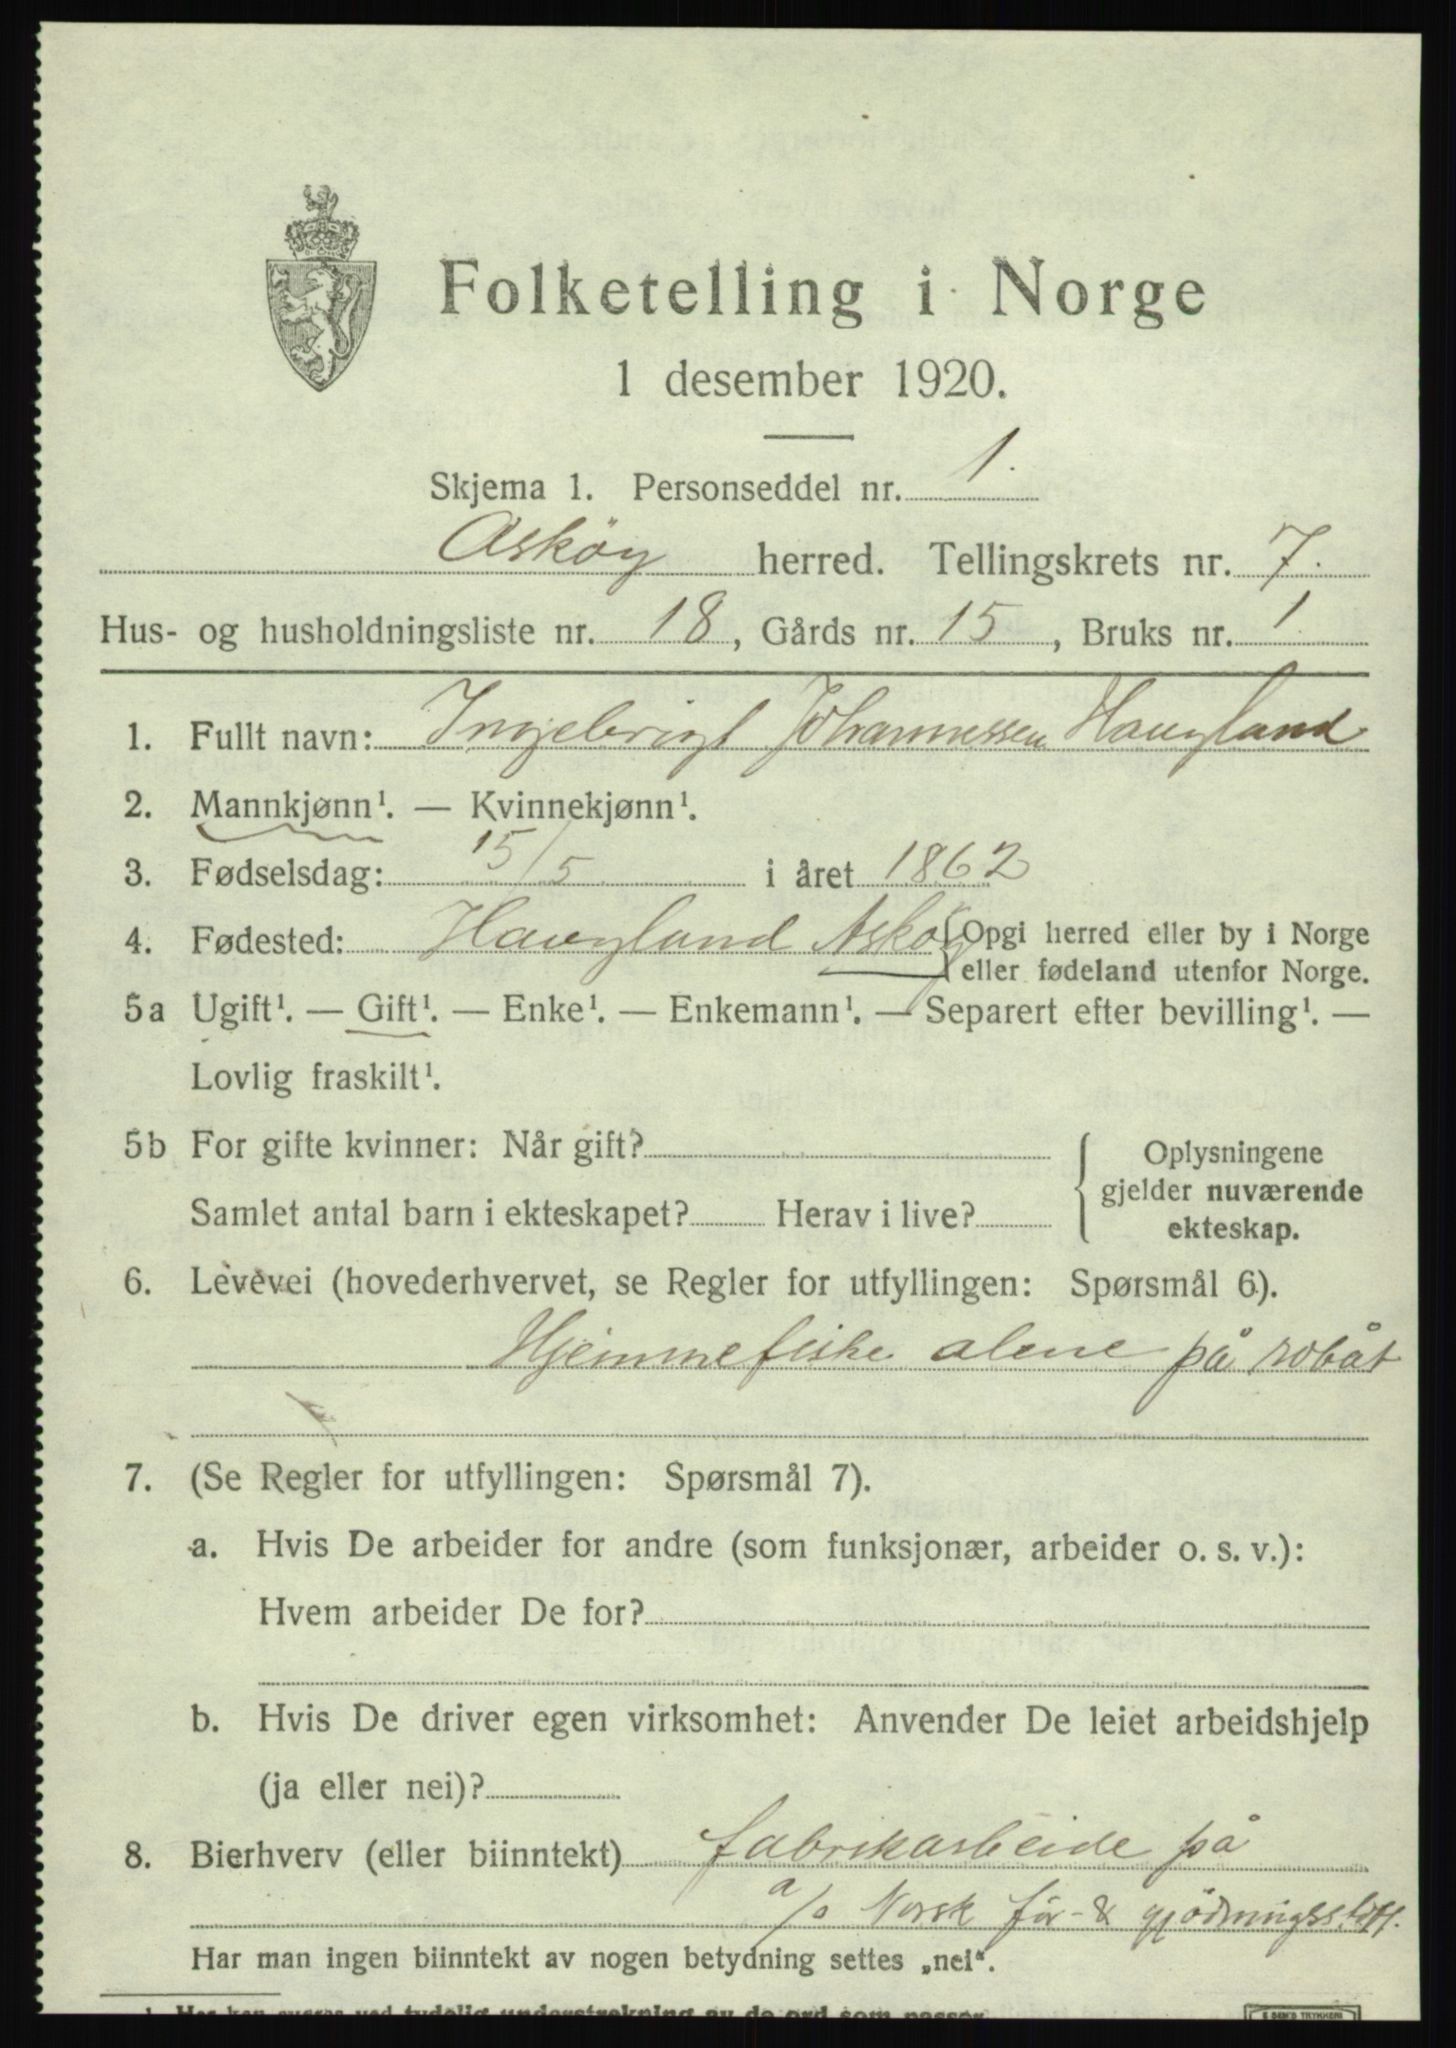 Folketelling i Norge
1 desember 1920.
Skjema 1. Personseddel nr. 1.
Asköy herred. Tellingskrets nr. 7.
Hus- og husholdningsliste nr. 18, Gårds nr. 15, Bruks nr. 1
1. Fullt navn: Ingebrigt Johannessen Haugland
2. Mannkjønn¹. — Kvinnekjønn¹.
3. Fødselsdag: 15/5 i året 1862
4. Fødested: Haugland Asköy {Opgi herred eller by i Norge
eller fødeland utenfor Norge.
5a Ugift¹. — Gift¹. — Enke¹. — Enkemann¹. — Separert efter bevilling¹. —
Lovlig fraskilt¹.
5b For gifte kvinner: Når gift?
Samlet antal barn i ekteskapet? Herav i live?
{ Oplysningene
gjelder nuværende
ekteskap.
6. Levevei (hovederhvervet, se Regler for utfyllingen: Spørsmål 6).
Hjemmefiske alene på robåt
7. (Se Regler for utfyllingen: Spørsmål 7).
a. Hvis De arbeider for andre (som funksjonær, arbeider o. s. v.):
Hvem arbeider De for?
b. Hvis De driver egen virksomhet: Anvender De leiet arbeidshjelp
(ja eller nei)?
8. Bierhverv (eller biinntekt) fabrikarbeide på
a/s Norsk for- & gjödningsstoff.
Har man ingen biinntekt av nogen betydning settes „nei“.